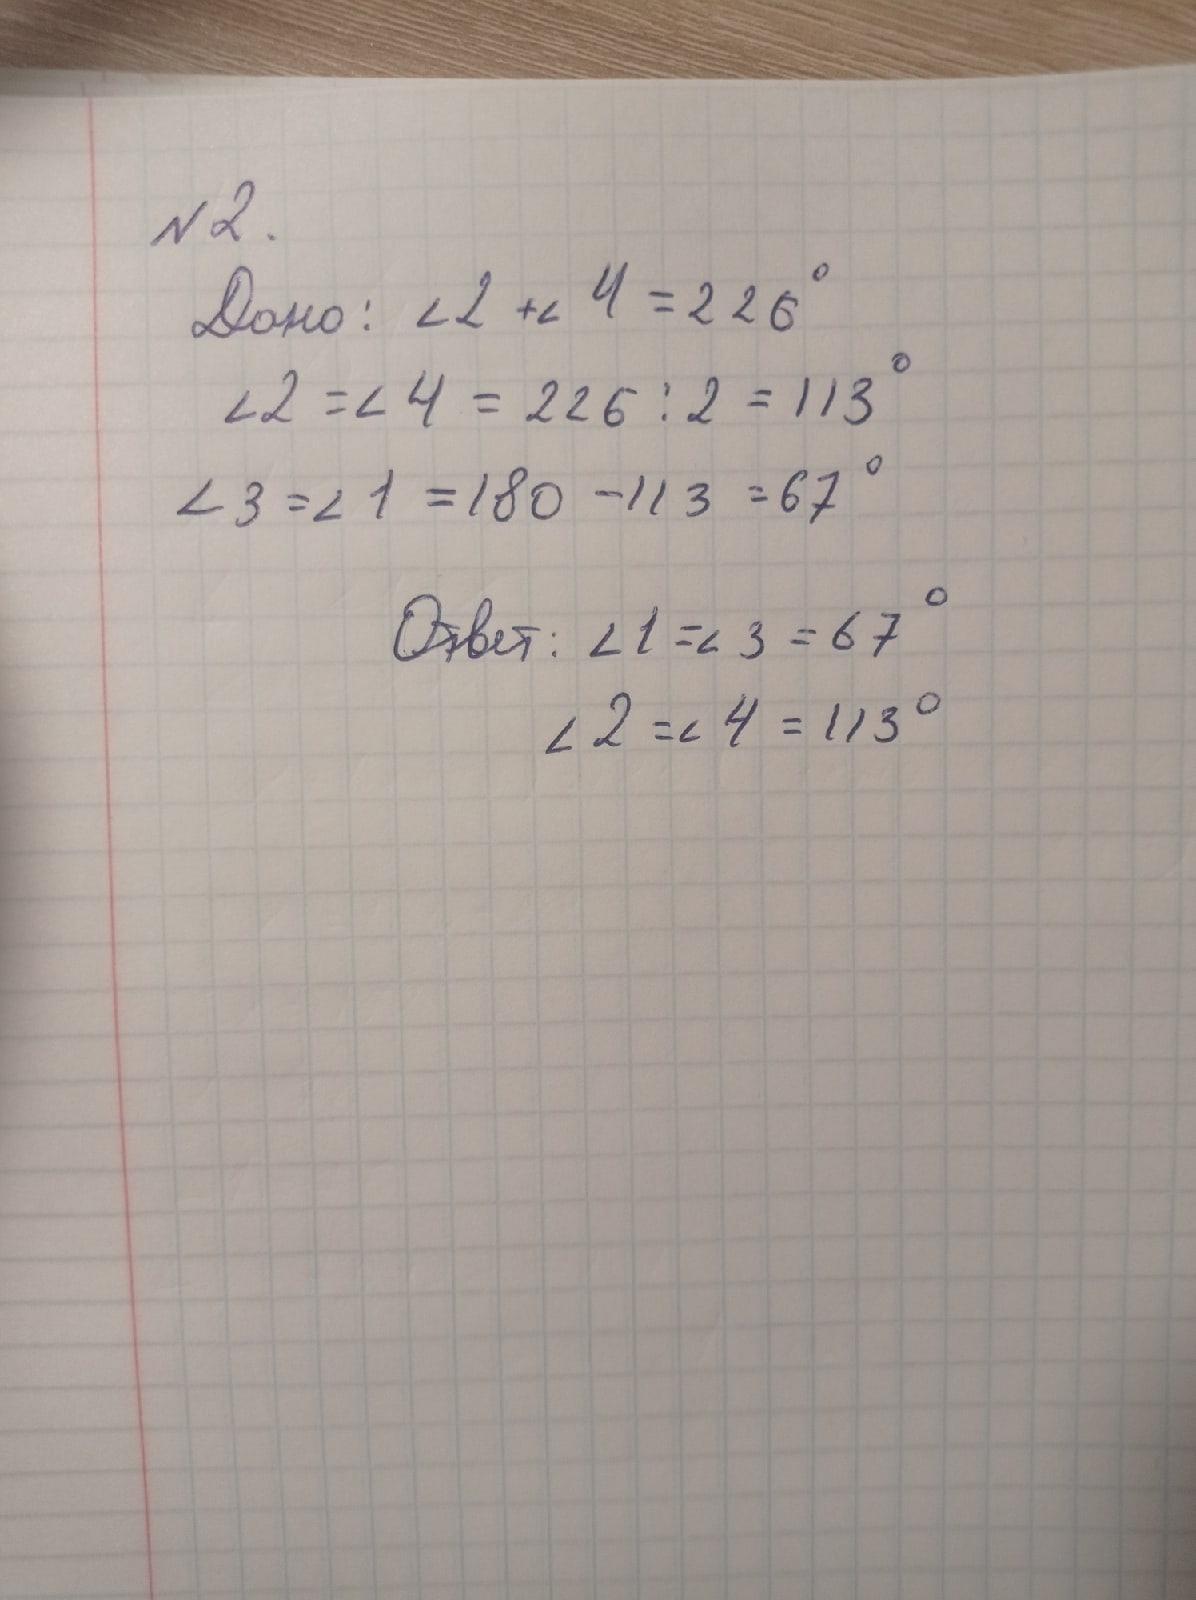 N2.
Дано: ∠2 +∠4 = 226°
∠2 =∠4 = 226 : 2 = 113°
∠3 =∠1 = 180 - 113 = 67°
Ответ: ∠1 =∠3 = 67°
∠2 =∠4 = 113°